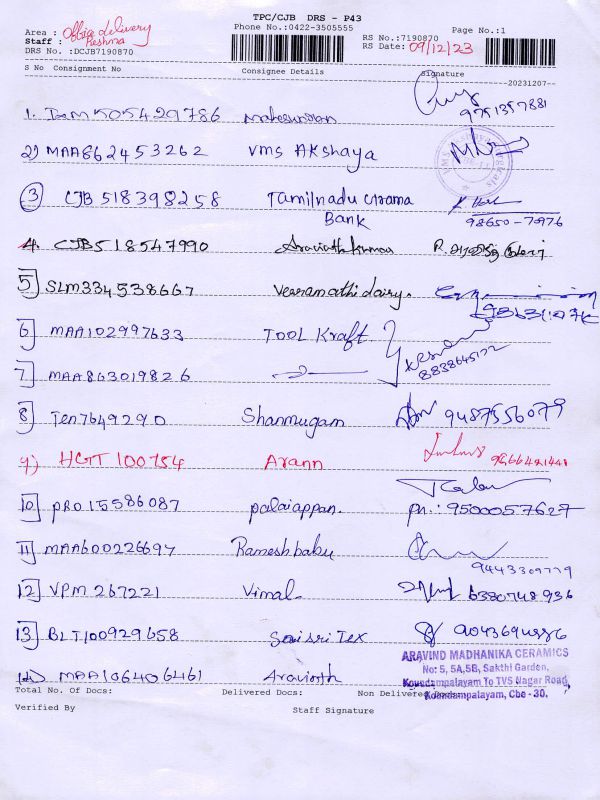 TPC/CJB DRS - P43
Area : office delivery
Staff : Reshma
Phone No.:0422-3505555
RS No.:7190870
Page No.:1
DRS No. :DCJB7190870
RS Date: 09/12/23
S No Consignment No Consignee Details Signature
20231207--
1. 505429786
9751357881
2) MAA862453262 VMS AKshaya
3 CJB 518398258 Tamilnadu Grama
Bank
98650-70976
4. CJB518547990 Aravinth kumar
5 SLM334538667 Veeramathi dairy.
6 MAA102997633 TOOL Kraft
7 MAA863019826
8 Ten7649290 Shanmugam 9487556079
9) HGT 100754 Arann
10 PRO 15586087 palaiappan. Ph.: 9500057627
11 MAA600226697 Rameshbabu
9443309779
12 VPM 267221 Vimal 6380748936
13 BLT100929658 Saisri Tex
ARAVIND MADHANIKA CERAMICS
No: 5, 5A,5B, Sakthi Garden,
14) MAA106406461 Aravinth
Koundampalayam To TVS Nagar Road,
Koundampalayam, Cbe - 30.
Total No. Of Docs: Delivered Docs: Non Delivered Docs:
Verified By Staff Signature